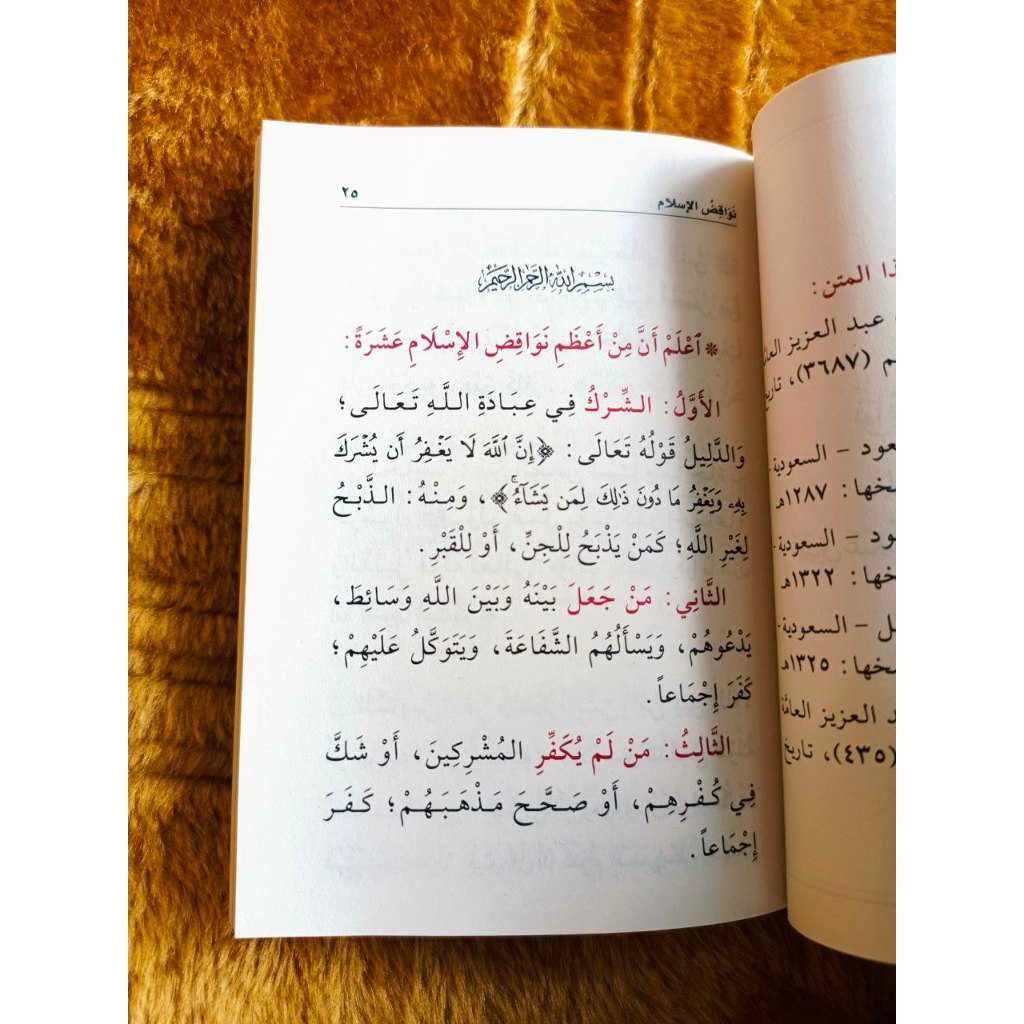 نَوَاقِضُ الإِسلام ٢٥
بِسْمِ اللهِ الرَّحْمَنِ الرَّحِيمِ
* ٱعْلَمْ أَنَّ مِنْ أَعْظَمِ نَوَاقِضِ الإِسْلَامِ عَشَرَةً:
الأَوَّلُ: الشِّرْكُ فِي عِبَادَةِ اللَّهِ تَعَالَى؛
وَالدَّلِيلُ قَوْلُهُ تَعَالَى: ﴿إِنَّ ٱللَّهَ لَا يَغْفِرُ أَن يُشْرَكَ
بِهِۦ وَيَغْفِرُ مَا دُونَ ذَٰلِكَ لِمَن يَشَآءُۚ﴾، وَمِنْهُ: الذَّبْحُ
لِغَيْرِ اللَّهِ؛ كَمَنْ يَذْبَحُ لِلْجِنِّ، أَوْ لِلْقَبْرِ.
الثَّانِي: مَنْ جَعَلَ بَيْنَهُ وَبَيْنَ اللَّهِ وَسَائِطَ،
يَدْعُوهُمْ، وَيَسْأَلُهُمُ الشَّفَاعَةَ، وَيَتَوَكَّلُ عَلَيْهِمْ؛
كَفَرَ إِجْمَاعاً.
الثَّالِثُ: مَنْ لَمْ يُكَفِّرِ المُشْرِكِينَ، أَوْ شَكَّ
فِي كُفْرِهِمْ، أَوْ صَحَّحَ مَذْهَبَهُمْ؛ كَفَرَ
إِجْمَاعاً.
المتن:
عبد العزيز
(٣٦٨٧)، تاريخ
– السعودية-
١٢٨٧هـ
– السعودية-
١٣٢٢هـ
– السعودية-
١٣٢٥هـ
العزيز العامَّة
(٤٣٥)، تاريخ